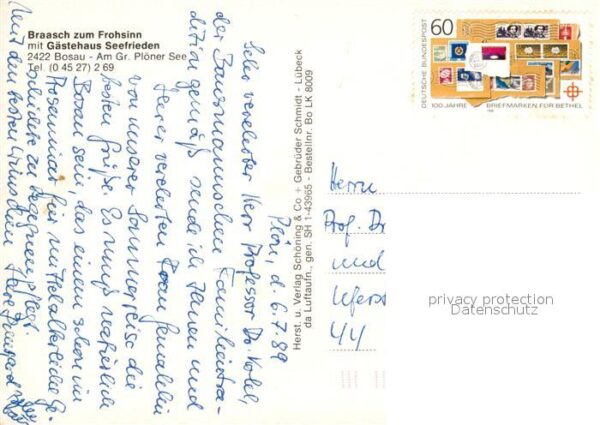 Braasch zum Frohsinn
mit Gästehaus Seefrieden
2422 Bosau - Am Gr. Plöner See
Tel. (0 45 27) 2 69
Plön, d. 6.7.89
Sehr verehrter Herr Professor Dr.
der Bausmannschen Familientra-
dition gemäß sende ich Ihnen und
Ihrer verehrten Frau Gemahlin
von unserer Sommerreise die
besten Grüße. Es muß natürlich
Bosau sein, das einem schon im
Proseminar für mittelalterliche Ge-
schichte zu begegnen pflegt.
Mit den besten Wünschen Ihre Irmgard
Herst. u. Verlag Schöning & Co + Gebrüder Schmidt - Lübeck
da Luftaufn., gen. SH 1-43965 - Bestellnr. Bo LK 8009
60
DEUTSCHE BUNDESPOST
100 JAHRE BRIEFMARKEN FÜR BETHEL
Herrn
Prof. Dr
und
44
privacy protection
Datenschutz